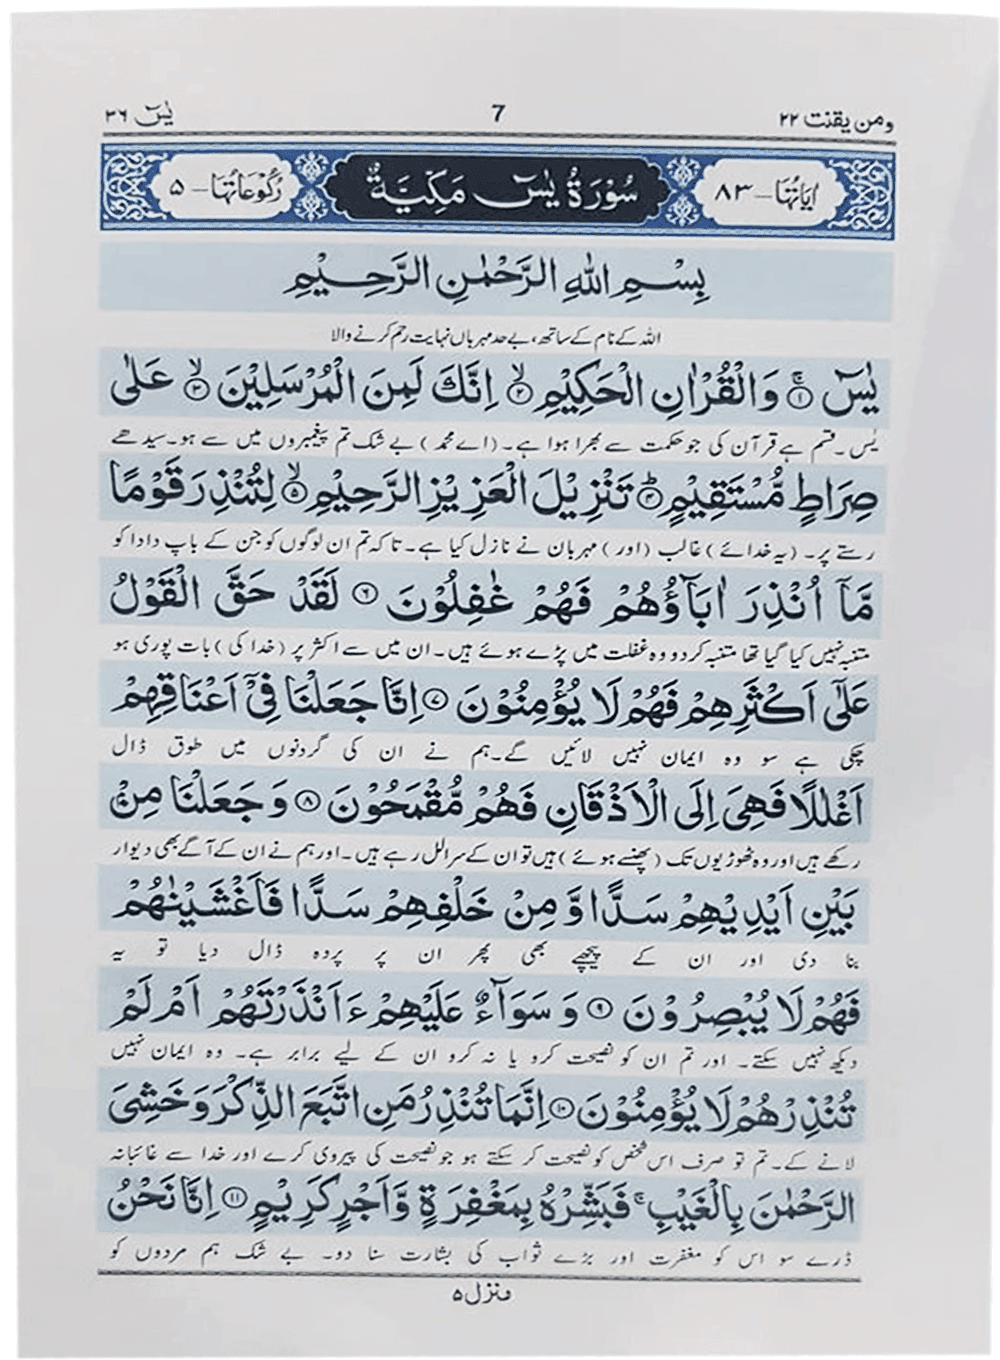 ومن یقنت ۲۲
7
یٰسٓ ۳۶
اٰیَاتُهَا – ۸۳
سُوْرَةُ یٰسٓ مَكِّیَّةٌ
رُكُوْعَاتُهَا – ۵
بِسْمِ اللهِ الرَّحْمٰنِ الرَّحِیْمِ
اللہ کے نام کے ساتھ، بے حد مہربان نہایت رحم کرنے والا
یٰسٓ ۚ﴿۱﴾ وَالْقُرْاٰنِ الْحَكِیْمِ ۙ﴿۲﴾ اِنَّكَ لَمِنَ الْمُرْسَلِیْنَ ۙ﴿۳﴾ عَلٰی
یٰس۔ قسم ہے قرآن کی جو حکمت سے بھرا ہوا ہے۔ (اے محمد) بے شک تم پیغمبروں میں سے ہو۔ سیدھے
صِرَاطٍ مُّسْتَقِیْمٍ ؕ﴿۴﴾ تَنْزِیْلَ الْعَزِیْزِ الرَّحِیْمِ ۙ﴿۵﴾ لِتُنْذِرَ قَوْمًا
رستے پر۔ (یہ خدائے) غالب (اور) مہربان نے نازل کیا ہے۔ تاکہ تم ان لوگوں کو جن کے باپ دادا کو
مَّاۤ اُنْذِرَ اٰبَآؤُهُمْ فَهُمْ غٰفِلُوْنَ ﴿۶﴾ لَقَدْ حَقَّ الْقَوْلُ
متنبہ نہیں کیا گیا تھا متنبہ کردو وہ غفلت میں پڑے ہوئے ہیں۔ ان میں سے اکثر پر (خدا کی) بات پوری ہو
عَلٰۤی اَكْثَرِهِمْ فَهُمْ لَا یُؤْمِنُوْنَ ﴿۷﴾ اِنَّا جَعَلْنَا فِیْۤ اَعْنَاقِهِمْ
چکی ہے سو وہ ایمان نہیں لائیں گے۔ ہم نے ان کی گردنوں میں طوق ڈال
اَغْلٰلًا فَهِیَ اِلَی الْاَذْقَانِ فَهُمْ مُّقْمَحُوْنَ ﴿۸﴾ وَجَعَلْنَا مِنْۢ
رکھے ہیں اور وہ ٹھوڑیوں تک (پھنسے ہوئے) ہیں تو ان کے سر الل رہے ہیں۔ اور ہم نے ان کے آگے بھی دیوار
بَیْنِ اَیْدِیْهِمْ سَدًّا وَّمِنْ خَلْفِهِمْ سَدًّا فَاَغْشَیْنٰهُمْ
بنا دی اور ان کے پیچھے بھی پھر ان پر پردہ ڈال دیا تو یہ
فَهُمْ لَا یُبْصِرُوْنَ ﴿۹﴾ وَسَوَآءٌ عَلَیْهِمْ ءَاَنْذَرْتَهُمْ اَمْ لَمْ
دیکھ نہیں سکتے۔ اور تم ان کو نصیحت کرو یا نہ کرو ان کے لیے برابر ہے۔ وہ ایمان نہیں
تُنْذِرْهُمْ لَا یُؤْمِنُوْنَ ﴿۱۰﴾ اِنَّمَا تُنْذِرُ مَنِ اتَّبَعَ الذِّكْرَ وَخَشِیَ
لانے کے۔ تم تو صرف اس شخص کو نصیحت کر سکتے ہو جو نصیحت کی پیروی کرے اور خدا سے غائبانہ
الرَّحْمٰنَ بِالْغَیْبِ ۚ فَبَشِّرْهُ بِمَغْفِرَةٍ وَّاَجْرٍ كَرِیْمٍ ﴿۱۱﴾ اِنَّا نَحْنُ
ڈرے سو اس کو مغفرت اور بڑے ثواب کی بشارت سنا دو۔ بے شک ہم مردوں کو
منزل ۵